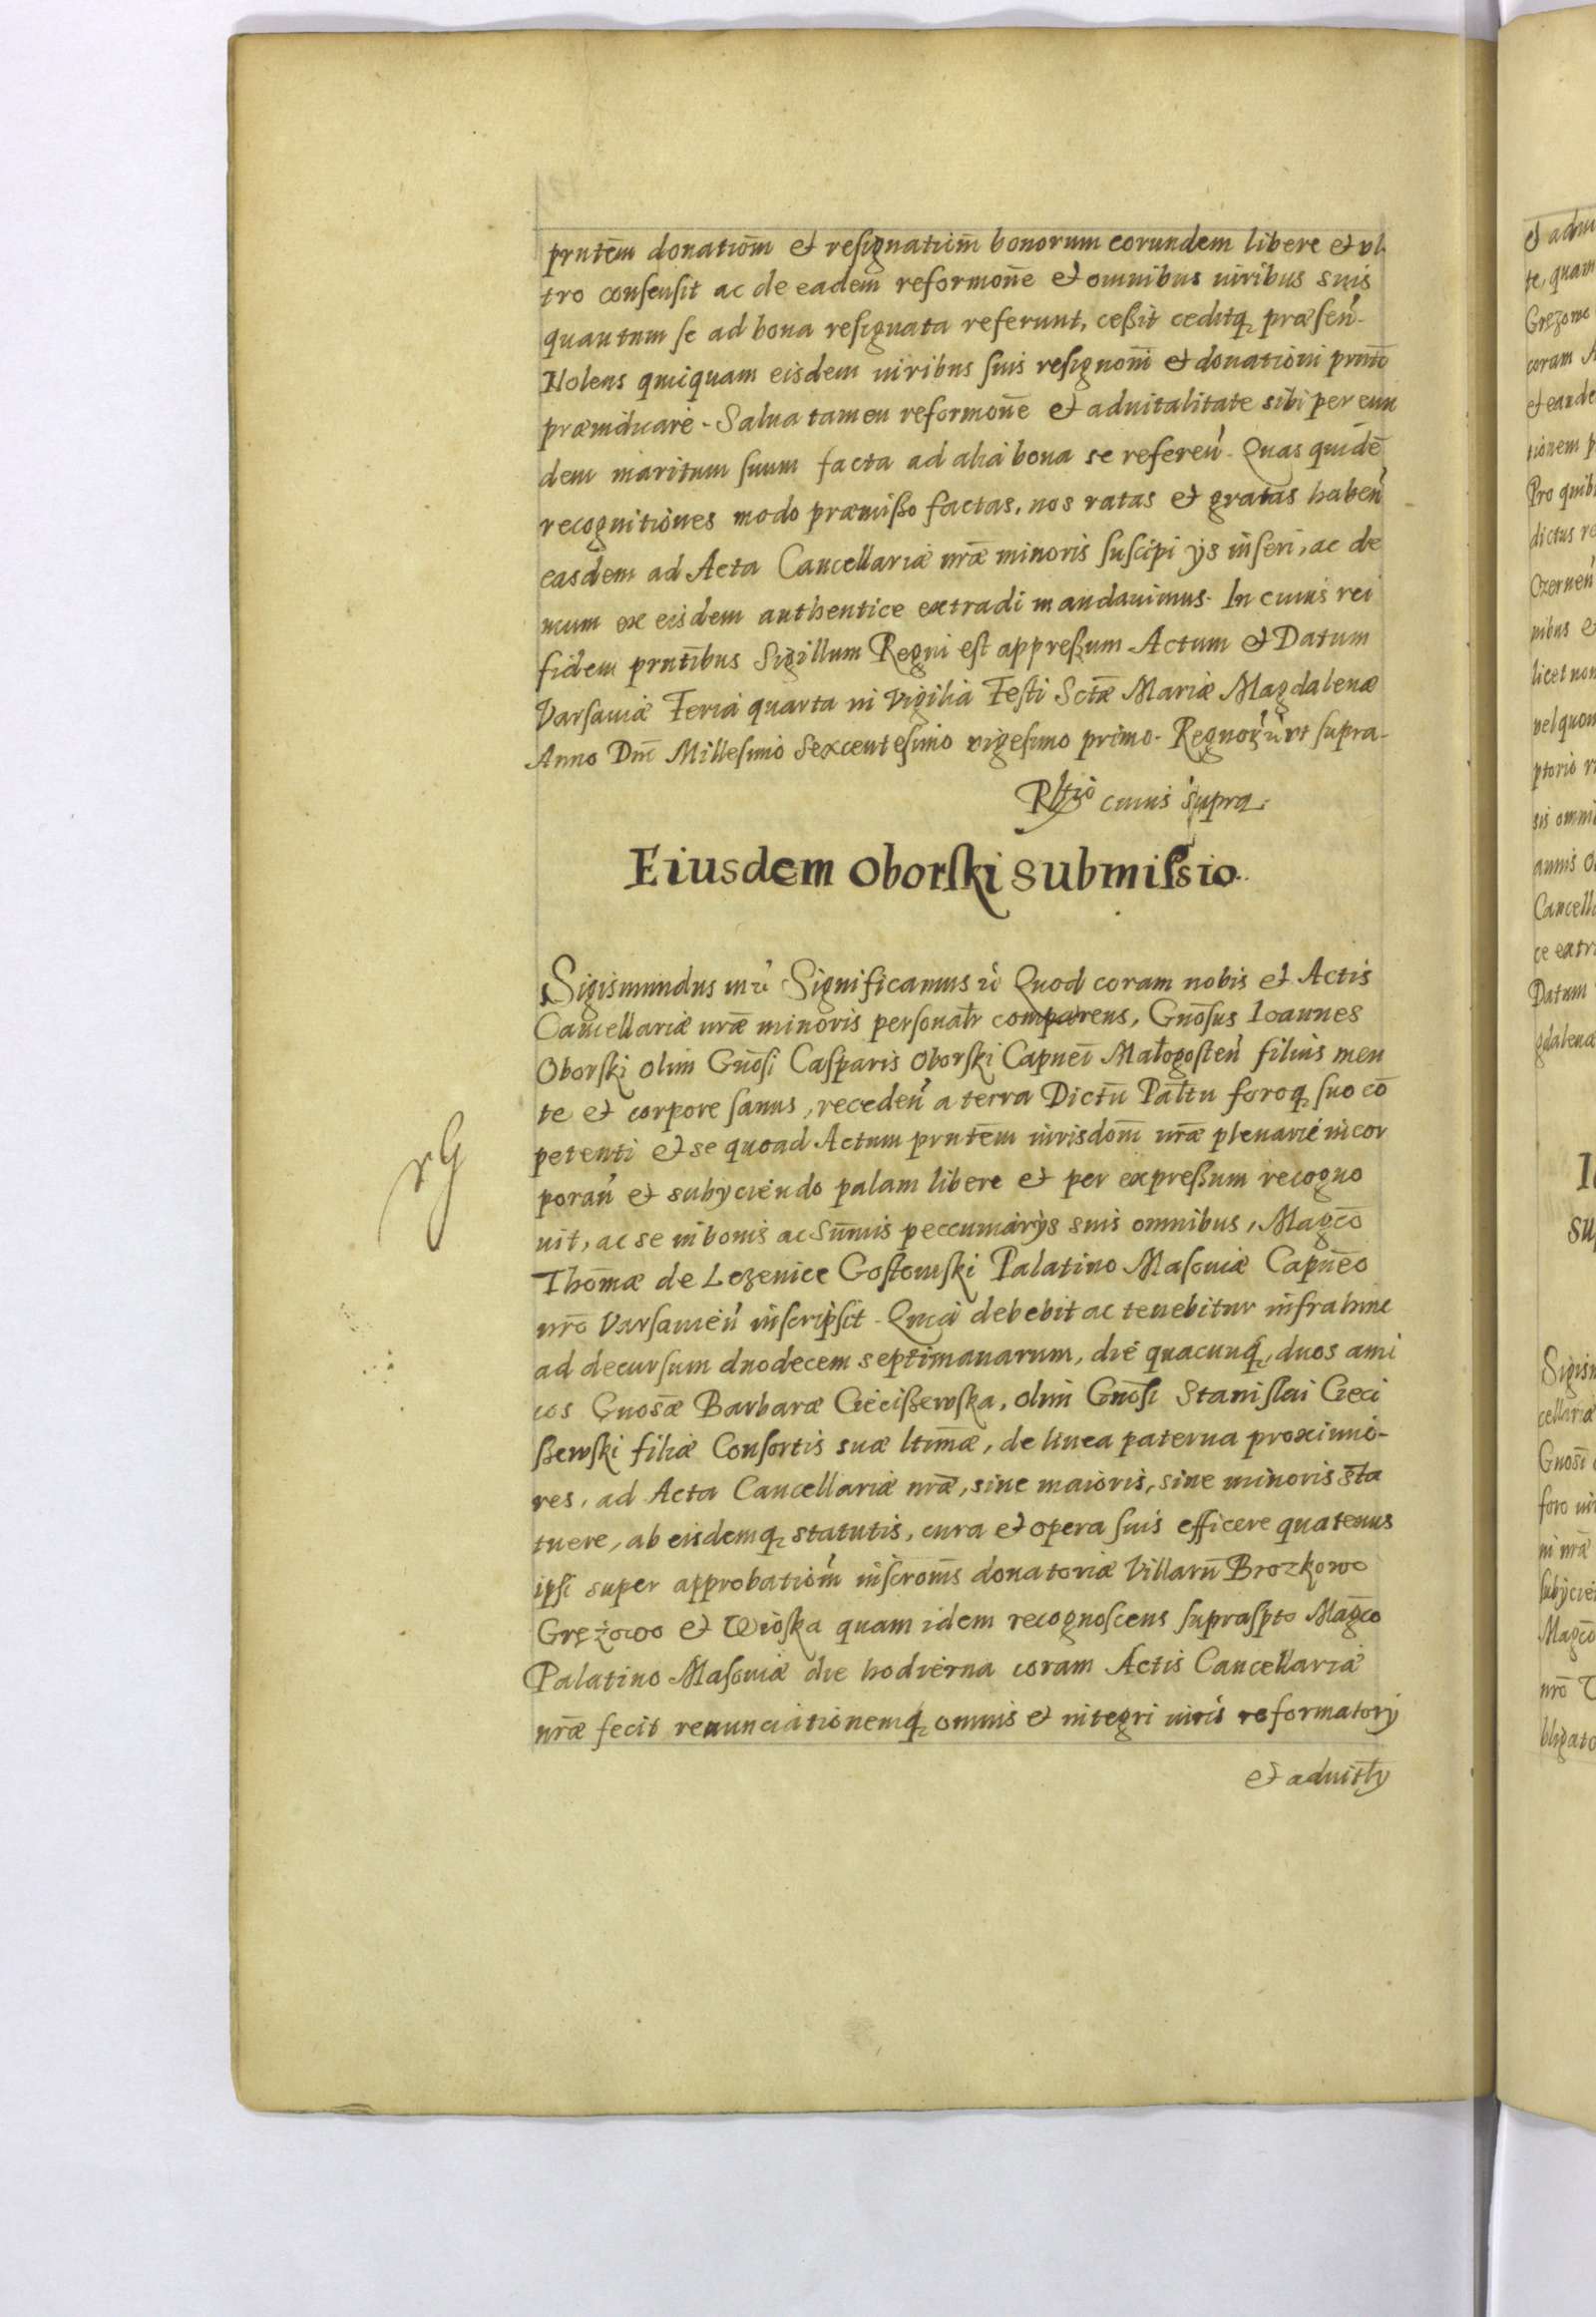 prntēm donatiom̄ et resignatiim̄ bonorum eorundem libere et vl
tro consensit ac de eadem reformon̄e et omnibus iuribus suis
quantum se ad bona resignata referunt, ceßit ceditq, præsen̄
Nolens quicquam eisdem iuribus suis resignom̄ et donationi prntē
præiudicare. Salua tamen reformon̄e et aduitalitate sibi per eun
dem maritum suum facta ad alia bona se referen̄. Quas quidē
recognitiones modo præmißo factas, nos ratas et gratas haben̄
easdem ad Acta Cancellariæ nrǣ minoris suscipi ijs inseri, ac de
mum ex eisdem authentice extradi mandauimus. In cuius rei
fidem prntībus Sigillum Regni est appreßum Actum et Datum
Varsauiæ Feria quarta in Vigilia Festi Sctǣ Mariæ Magdalenæ
Anno Dnī Millesimo Sexcentesimo vigesimo primo. Regnor̄ ūt supra.
Rltīo cuius supra.
Eiusdem Oborski submissio.
Sigismundus etc̄ Significamus etc̄ Quod coram nobis et Actis
Cancellariæ nrǣ minoris personalr̄ comparens, Gnōsus Ioannes
Oborski olim Gnōsi Casparis Oborski Capnei Małogosten̄ filius men
te et corpore sanus, receden̄ a terra Dictū Paltū foroq, suo cō
petenti et se quoad Actum prntēm iurisdom̄ nrǣ plenarie incor
poran̄ et subijciendo palam libere et per expreßum recogno
uit, ac se in bonis ac Sum̄is peccuniarijs suis omnibus, Magcō
Thomǣ de Lezenice Gostomski Palatino Masouiæ Capnēo
nrō Varsauien̄ inscripsit. Quia debebit ac tenebitur infra hinc
ad decursum duodecem septimanarum, die quacunq, duos ami
cos Gnosǣ Barbaræ Cieciszewska, olim Gnōsi Stanislai Cieci
szewski filiæ Consortis suæ ltimǣ, de linea paterna proximio-
res, ad Acta Cancellariæ nrǣ, siue maioris, siue minoris sta
tuere, ab eisdemq, statutis, cura et opera suis efficere quatenus
ipsi super approbatiom̄ inscrom̄s donatoriæ Villarū Brozkowo
Grężowo et Wioska quam idem recognoscens supraspto Magcō
Palatino Masouiæ die hodierna coram Actis Cancellariæ
nrǣ fecit renunciationemq, omnis et integri iuris reformatorij
et aduitlȳ